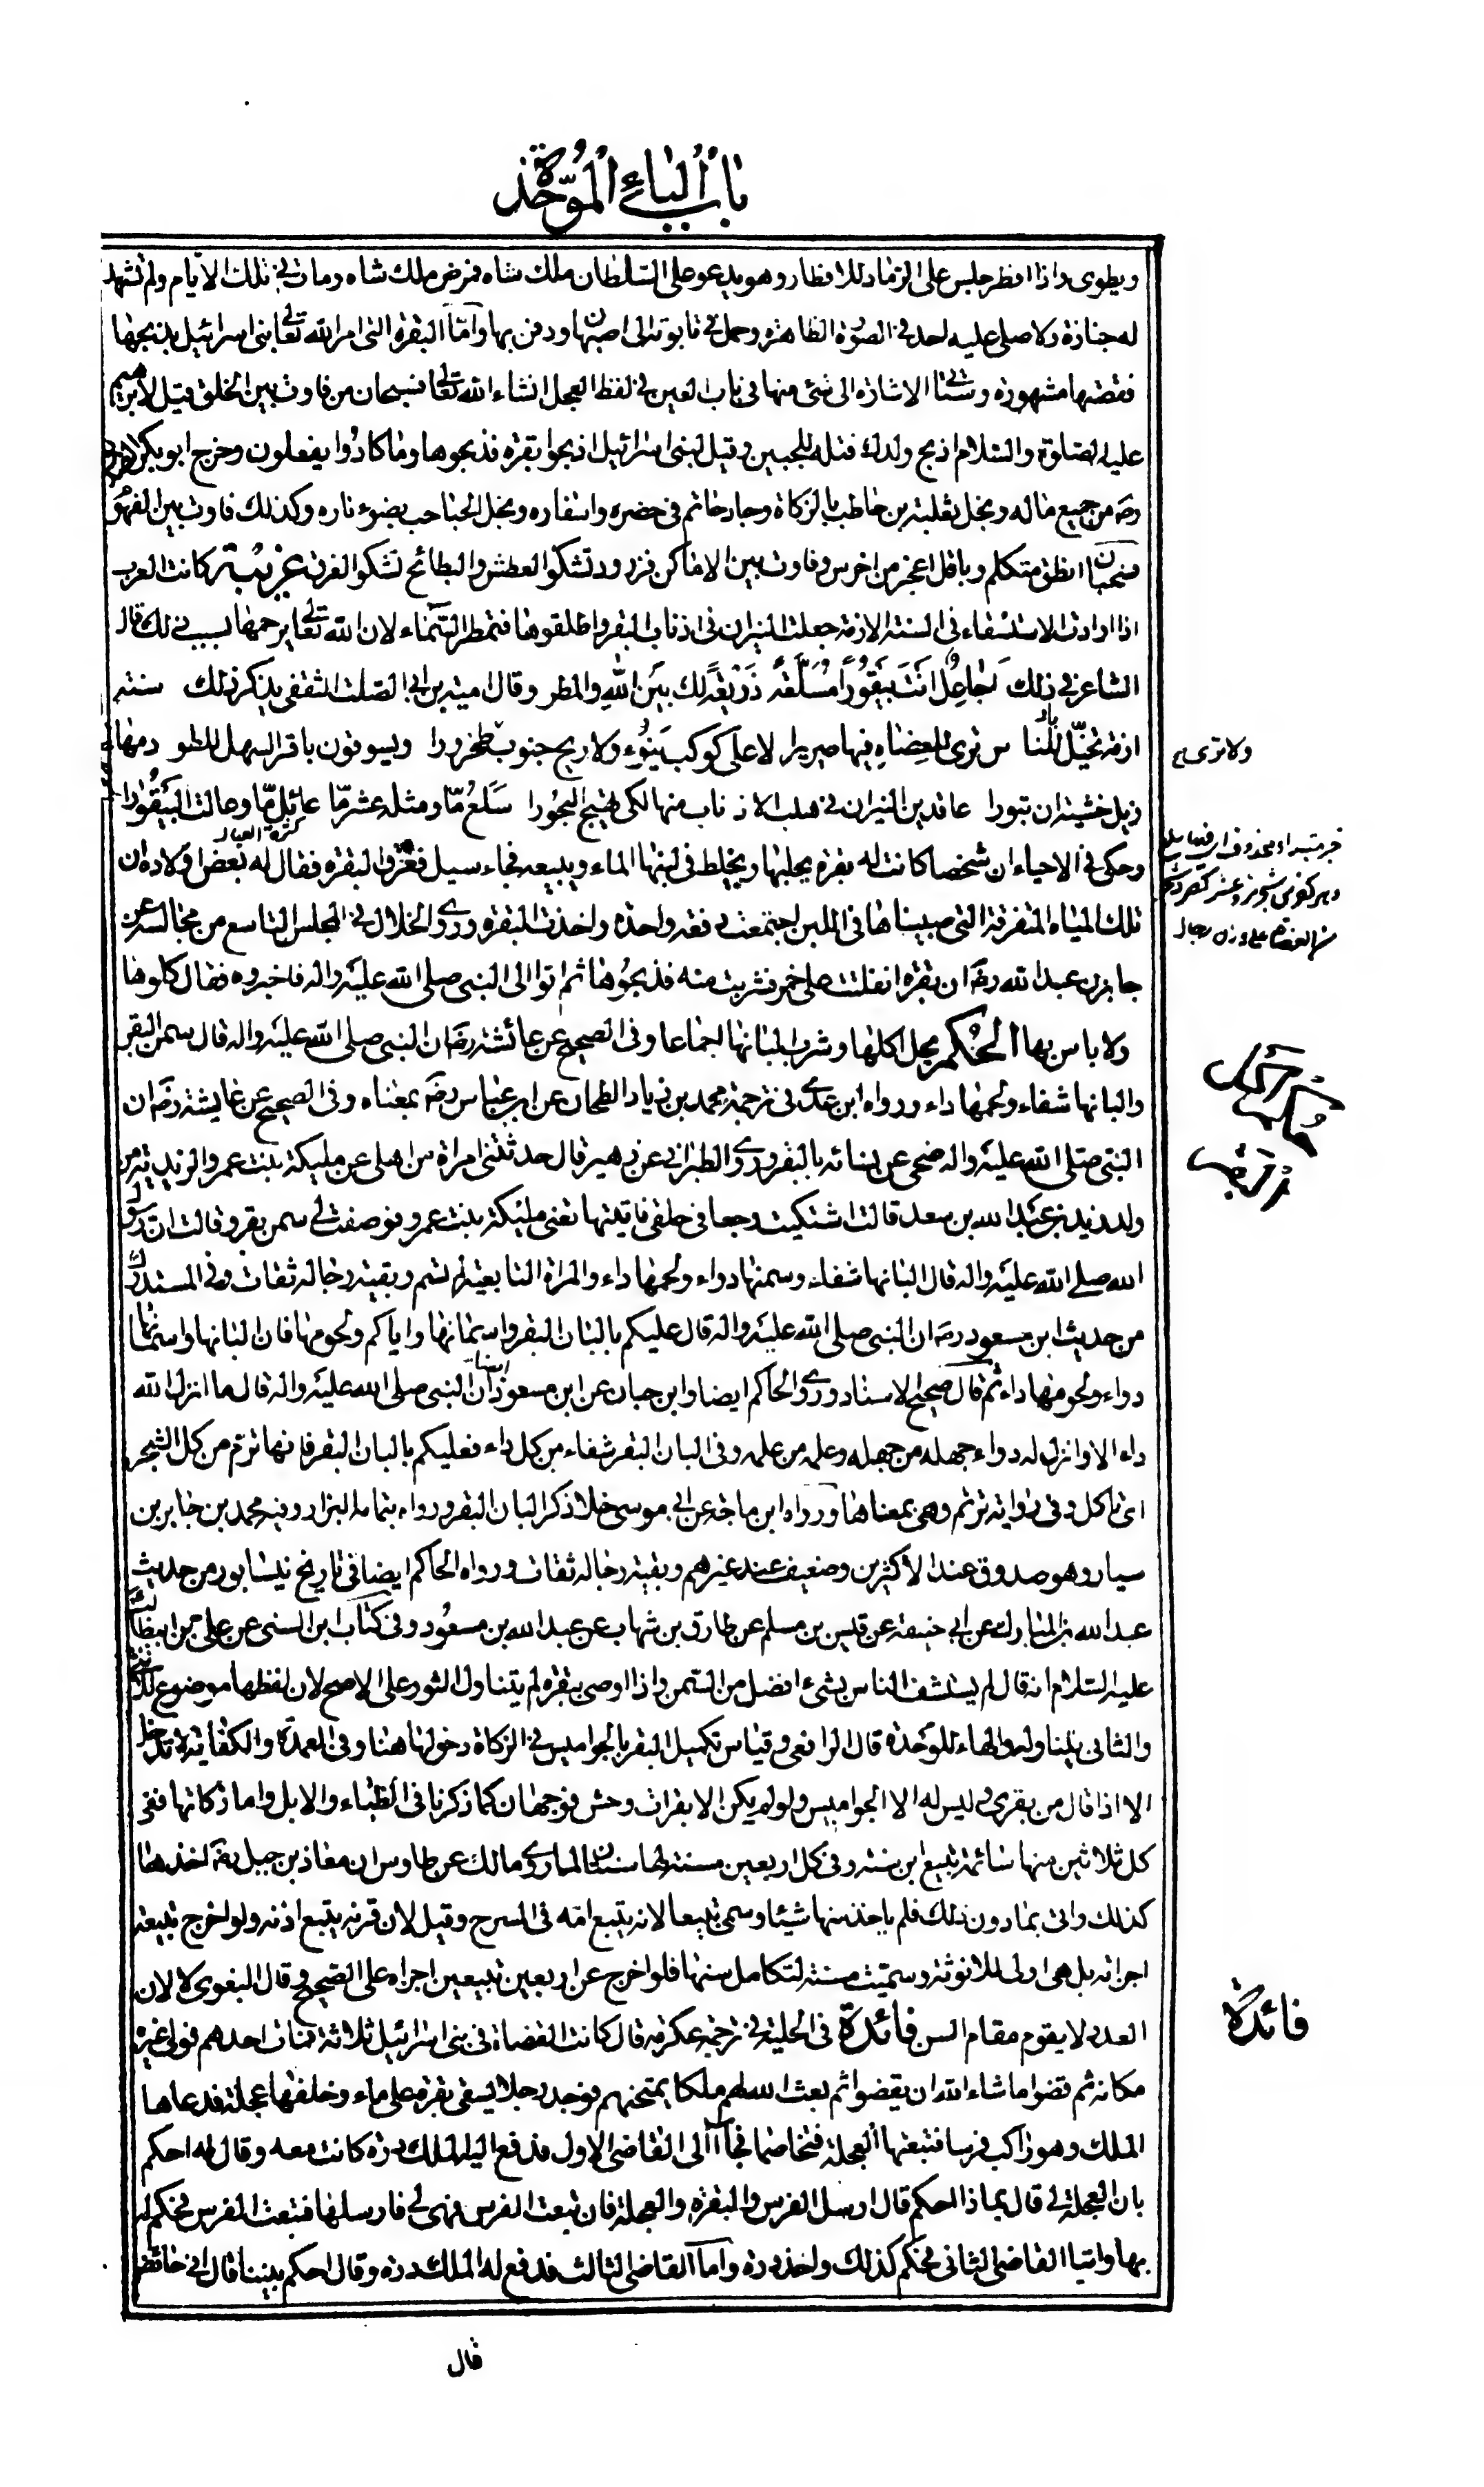 باب الباء الموحدة
ويطوى واذا افطر جلس على الرماد للافطار وهو يدعو على السلطان ملك شاه فمرض ملك شاه ومات فى تلك الايام ولم تشهد
له جنازة ولا صلى عليه احد فى الصورة الظاهرة وحمل فى تابوت الى اصبهان ودفن بها واما البقرة التى امر الله تعالى بنى اسرائيل بذبحها
فقصتها مشهورة وستاتى الاشارة الى شئ منها فى باب العين فى لفظ العجل انشاء الله تعالى فسبحان من فاوت بين الخلق قيل لابرهيم
عليه الصلوة والسلام اذبح ولدك فتله للجبين وقيل لبنى اسرائيل اذبحوا بقرة فذبحوها وما كادوا يفعلون وخرج ابو بكر
رضه من جميع ماله وبخل ثعلبة بن حاطب بالزكاة وجاد حاتم فى حضره واسفاره وبخل الحباحب بضوء ناره وكذلك فاوت بين الفهوم
فسحبان انطق متكلم وباقل اعجز من اخرس وفاوت بين الاماكن فزرود تشكو العطش والبطائح تشكو الغرق غريبة كانت العرب
اذا ارادت الاستسقاء فى السنة الازمة جعلت النيران فى اذناب البقر واطلقوها فتمطر السماء لان الله تعالى يرحمها بسبب ذلك قال
الشاعر فى ذلك اجاعل انت بيقورا مسلعة ذريعة لك بين الله والمطر وقال امية بن ابى الصلت الثقفى يذكر ذلك سنة
ازمة تخيل للناس ترى للعضاه فيها صريرا لا على كوكب ينوء ولا ريح جنوب طخرورا ويسوقون باقر السهل للطو د مهاز
زيل خشية ان تبورا عاقدين النيران فى هلب الاذناب منها لكى تهيج البحورا سلع ما ومثله عشر ما عائل ما وعالت البيقورا
وحكى فى الاحياء ان شخصا كانت له بقرة يحلبها ويخلط فى لبنها الماء ويبيعه فجاء سيل فغرق البقرة فقال له بعض اولاده ان
تلك المياه المتفرقة التى صببناها فى اللبن اجتمعت دفعة واحدة واخذت البقرة وروى الخلال فى المجلس التاسع من مجالسه عن
جابر بن عبد الله رضه ان بقرة انفلتت على خمر فشربت منه فذبحوها ثم اتوا الى النبى صلى الله عليه واله فاخبروه فقال كلوها
ولا باس بها الحكم يحل اكلها وشرب البانها اجماعا وفى الصحيح عن عائشة رضه ان النبى صلى الله عليه واله قال سمن البقر
والبانها شفاء ولحمها داء ورواه ابن عدى فى ترجمة محمد بن زياد الطحان عن ابن عباس رضه بمعناه وفى الصحيح عن عايشة رضه ان
النبى صلى الله عليه واله ضحى عن نسائه بالبقر وروى الطبرانى عن زهير قال حدثتنى امراة من اهلى عن مليكة بنت عمرو الزيدية من
ولد زيد بن عبد الله بن سعد قالت اشتكيت وجعا فى حلقى فاتيتها تعنى مليكة بنت عمرو فوصفت لى سمن بقر وقالت ان رسول
الله صلى الله عليه واله قال البانها شفاء وسمنها دواء ولحمها داء والمراة التابعية لم تسم وبقية رجاله ثقات وفى المستدرك
من حديث ابن مسعود رضه ان النبى صلى الله عليه واله قال عليكم بالبان البقر واسمانها واياكم ولحومها فان البانها واسمانها
دواء ولحومها داء ثم قال صحيح الاسناد وروى الحاكم ايضا وابن حبان عن ابن مسعود ان النبى صلى الله عليه واله قال ما انزل الله
داء الا وانزل له دواء جهله من جهله وعلمه من علمه وفى البان البقر شفاء من كل داء فعليكم بالبان البقر فانها ترم من كل الشجر
اى تاكل وفى رواية ترتم وهى بمعناها ورواه ابن ماجة عن ابى موسى خلا ذكر البان البقر ورواه بتمامه البزار وفيه محمد بن جابر بن
سيار وهو صدوق عند الاكثرين وضعيف عند غيرهم وبقية رجاله ثقات ورواه الحاكم ايضا فى تاريخ نيسابور من حديث
عبد الله بن المبارك عن ابى حنيفة عن قيس بن مسلم عن طارق بن شهاب عن عبد الله بن مسعود وفى كتاب ابن السنى عن على بن ابيطالب
عليه السلام انه قال لم يستشف الناس بشئ افضل من السمن واذا اوصى ببقرة لم يتناول الثور على الاصح لان لفظها موضوع للانثى
والثانى يتناوله والهاء للوحدة قال الرافعى وقياس تكميل البقر بالجواميس فى الزكاة دخولها هنا وفى العمدة والكفاية لا تدخل
الا اذا قال من بقرى وليس له الا الجواميس ولو لم يكن الا بقرات وحش فوجهان كما ذكرنا فى الظباء والابل واما زكاتها ففى
كل ثلاثين منها سائمة تبيع ابن سنة وفى كل اربعين مسنة لها سنتان لما روى مالك عن طاوس ان معاذ بن جبل رضه اخذ هما
كذلك واتى بما دون ذلك فلم ياخذ منها شيئا وسمى تبيعا لانه يتبع امه فى السرح وقيل لان قرنه يتبع اذنه ولو اخرج تبيعة
اجزاته بل هى اولى للانوثة وسميت مسنة لتكامل سنها فلو اخرج عن اربعين تبيعين اجزاه على الصحيح وقال البغوى لا لان
العدد لا يقوم مقام السن فائدة فى الحلية فى ترجمة عكرمة قال كانت القضاة فى بنى اسرائيل ثلاثة فمات احدهم فولى غيره
مكانه ثم قضوا ما شاء الله ان يقضوا ثم بعث الله لهم ملكا يمتحنهم فوجد رجلا يسقى بقرة على ماء وخلفها عجلة فدعاها
الملك وهو راكب فرسا فتبعتها العجلة فتخاصما فجاآ الى القاضى الاول فدفع اليه الملك درة كانت معه وقال له احكم
بان العجلة لى قال بماذا احكم قال ارسل الفرس والبقرة والعجلة فان تبعت الفرس فهى لى فارسلها فتبعت الفرس فحكم له
بها واتيا القاضى الثانى فحكم كذلك واخذ درة واما القاضى الثالث فدفع له الملك درة وقال احكم بيننا قال انى حائض
قال
ولا ترى
فائدة